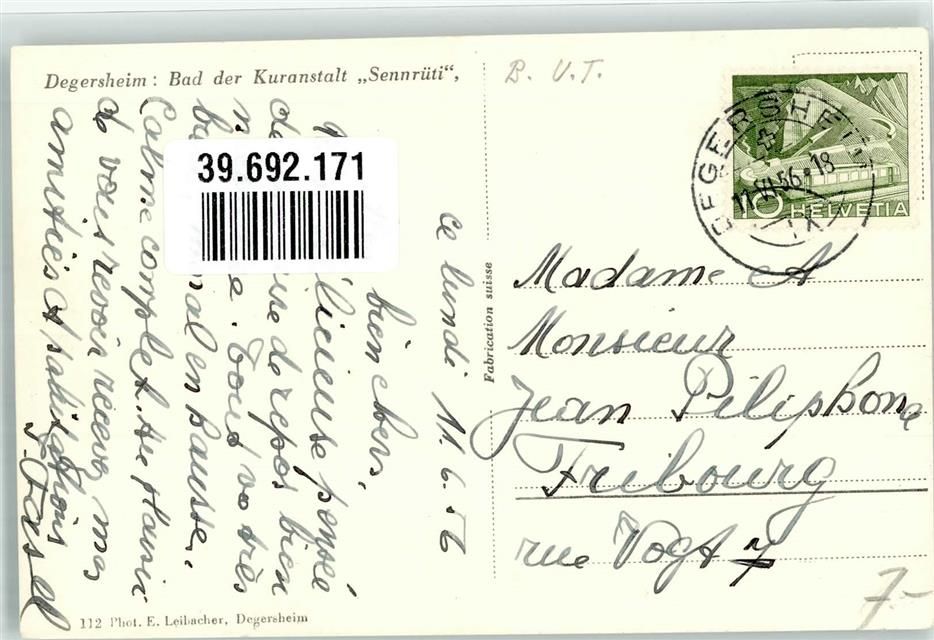 Degersheim: Bad der Kuranstalt „Sennrüti“,
B. V. T.
DEGERSHEIM
11.VI.56.18
10 HELVETIA
39.692.171
ce lundi 11. 6. 56
bien chers,
licieuse pensée
de repos bien
e. Tout va très
mal en hausse.
Calme complet. Au plaisir
de vous revoir recevez mes
amitiés et
Fabrication suisse
Madame et
Monsieur
Jean Piliphone
Fribourg
rue Vogt 7
7-
112 Phot. E. Leibacher, Degersheim